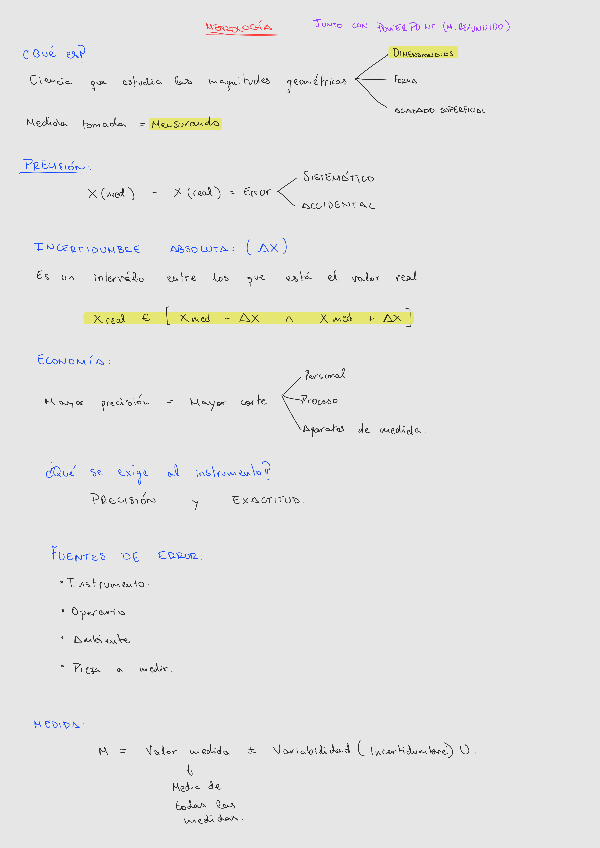 METROLOGÍA JUNTO CON POWERPOINT (M. REFUNDIDO)
¿QUÉ ES?
DIMENSIONALES
Ciencia que estudia las magnitudes geométricas
FORMA
ACABADO SUPERFICIAL
Medida tomada = Mensurando
PRECISIÓN:
SISTEMÁTICO
X (med) - X (real) = Error
ACCIDENTAL
INCERTIDUMBRE ABSOLUTA: (ΔX)
Es un intervalo entre los que está el valor real
X real ∈ [ X med - ΔX ∧ X med + ΔX ]
ECONOMÍA:
Personal
Mayor precisión = Mayor coste
Proceso
Aparatos de medida.
¿Qué se exige al instrumento?
PRECISIÓN y EXACTITUD.
FUENTES DE ERROR.
• Instrumento.
• Operario
• Ambiente
• Pieza a medir.
MEDIDA:
M = Valor medido ± Variabilidad (Incertidumbre) U.
↓
Media de
todas las
medidas.